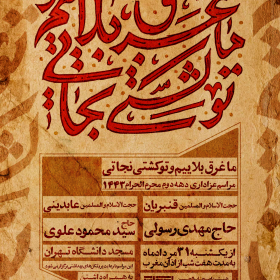 ما غرق بلاییم
تو کشتی نجاتی
ما غرق بلاییم و تو کشتی نجاتی
مراسم عزاداری دهه دوم محرم الحرام ۱۴۴۳
حجت الاسلام و المسلمین قنبریان حجت الاسلام و المسلمین عابدینی
حاج مهدی رسولی حاج سید محمود علوی
از یکشنبه ۳۱ مرداد ماه
به مدت هفت شب از اذان مغرب
مسجد دانشگاه تهران